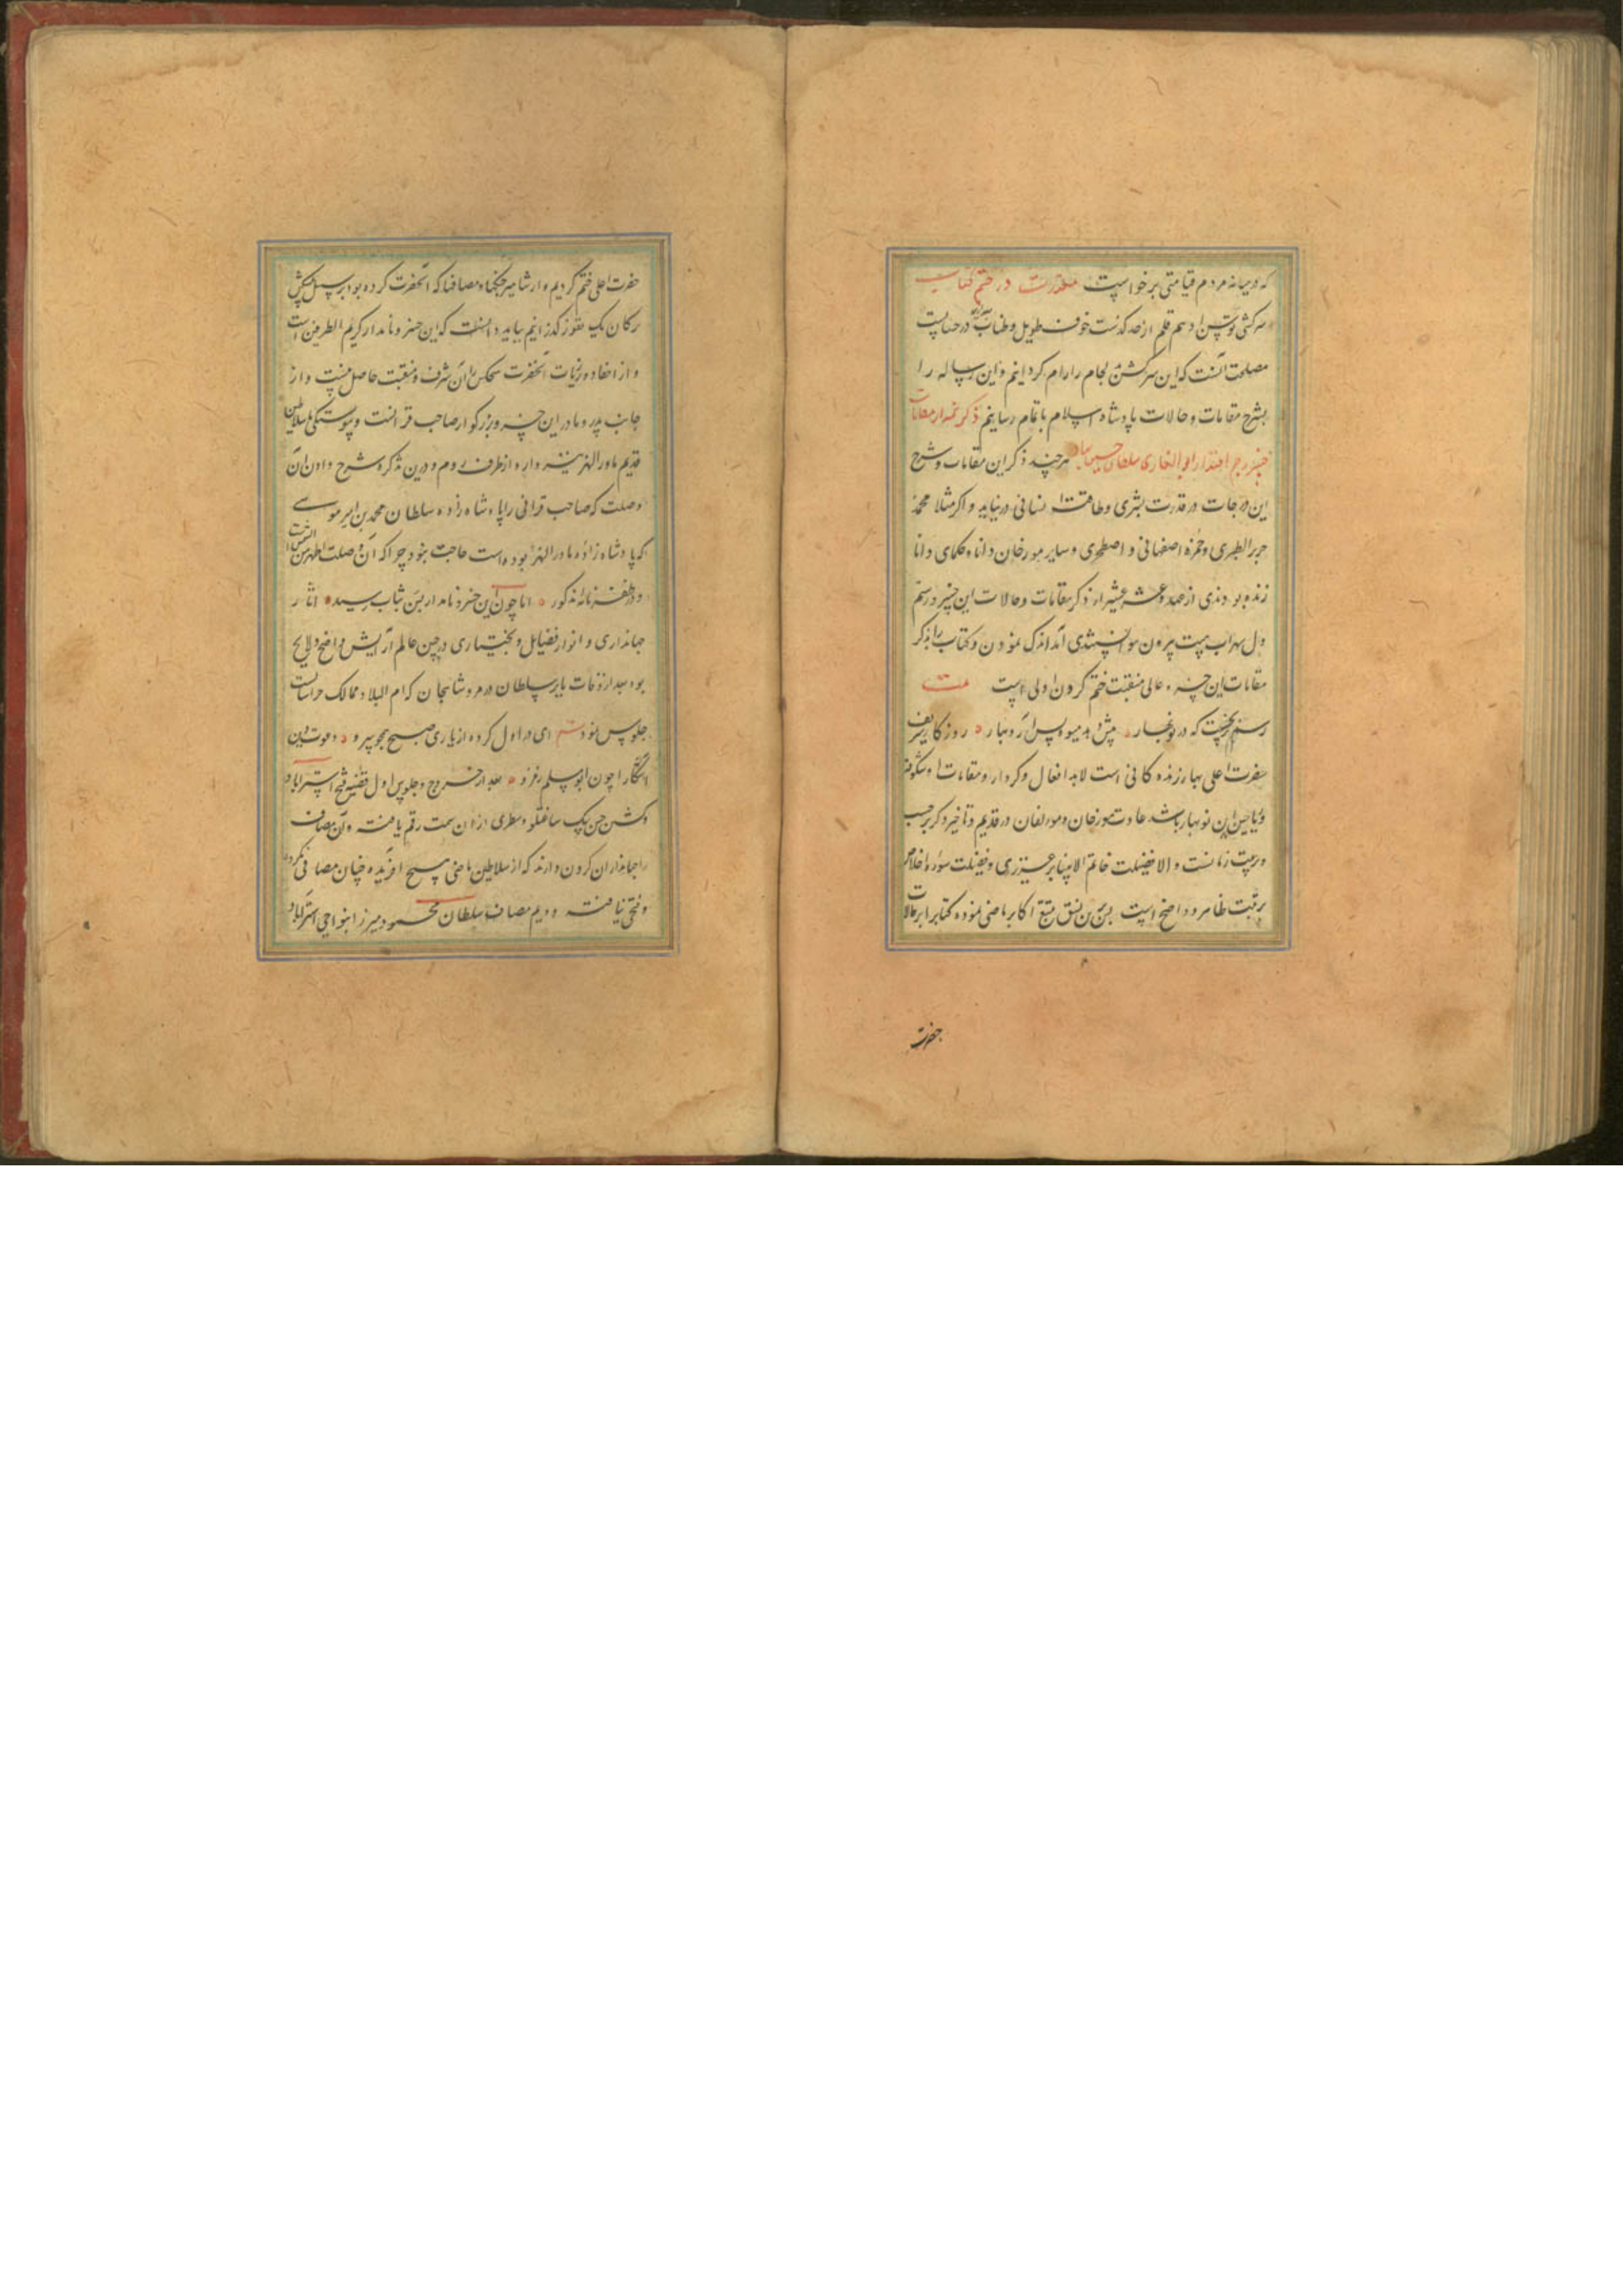 که در میانه مردم قیامتی برخواست معذرت در ختم کتاب
سرکشی توسن ادهم قلم از حد گذشت خوف طویل و طناب در حسابست
مصلحت آنست که این سرکش لجام را رام گردانیم و این رساله را
بشرح مقامات و حالات پادشاه اسلام باتمام رسانیم ذکر شمه از مقامات
خسرو جم اقتدار ابو الغازی سلطان حسین هرچند ذکر این مقامات و شرح
این درجات در قدرت بشری و طاقت انسانی در نیاید و اگر مثلا محمد
جریر الطبری و حمزه اصفهانی و اصطخری و سایر مورخان دانا و حکمای دانا
زنده بودندی از صد و عشر عشیر از ذکر مقامات و حالات این خسرو رستم
دل سهراب هیبت بیرون نتوانستندی آمد اندک نمودن و کتاب را بذکر
مقامات این خسرو عالی منقبت ختم کردن اولی است
رسم که در نوبهار پیش دهد میوه پس آرد بهار روزگار شریف
حضرت اعلی بهار زنده کانی است لابد افعال و کردار و مقامات او شکوفه
و ریاحین این نوبهار باشد عادت مورخان و مولفان در قدیم و تاخیر ذکر بر حسب
و ترتیب زمانست و الا فضیلت خاتم الانبیا بر عزیزی و فضیلت سوره اخلاص
بر تبت ظاهر و واضح است بدین نسق تتبع اکابر ماضی نموده کتاب را بر حالات
حضرت
حضرت اعلی ختم کردیم و از مشاهیر جنگها و مصافها که آنحضرت کرده بود بر سبیل پیشکش
ترکان یک تقوز گذرانیم بباید دانست که این خسرو نامدار کریم الطرفین است
و از احفاد و ذریات آنحضرت هیچکس را آن شرف و منقبت حاصل نیست و از
جانب پدر و مادر این خسرو بزرگوار صاحب قرانست و پیوستگی بسلاطین
قدیم ماورالنهر نیز دارد از طرف روم و درین تذکره شرح دادن آن
وصلت که صاحب قرانی را با شاه زاده سلطان محمد بن امیر موسی
که پادشاه زاده ماورالنهر بوده است حاجت نبود چرا که آن وصلت اظهر من الشمس است
و در ظفرنامه مذکور اما چون این خسرو نامدار بسن شباب رسید آثار
جهانداری و انوار فضایل و بختیاری در جبین عالم آرایش واضح و لایح
بود بعد از وفات بابر سلطان در مرو شاهجان که ام البلاد ممالک خراسانست
جلوس نمود ای در اول کرده از یاری صبح بجو پیرو دعوت دین
آشکارا چون ابو مسلم ز مرو بعد از خروج و جلوس اول قضیه فتح استراباد
و کشتن حسن بیک ساعتلو و سطری از آن سمت رقم یافت و آن مصاف
را جهانداران گردون دارند که از سلاطین ماضی هیچ آفریده چنان مصافی نکرده
و فتحی نیافت دویم مصاف سلطان محمود میرزا بنواحی استراباد